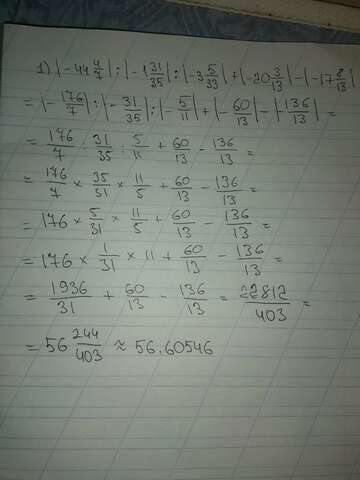 1) |-44 4/7| : |-1 31/35| : |-3 5/33| + |-20 3/13| - |-17 8/13|
= |-176/7| : |-31/35| : |-5/11| + |-60/13| - |136/13| =
= 176/7 : 31/35 : 5/11 + 60/13 - 136/13 =
= 176/7 × 35/31 × 11/5 + 60/13 - 136/13 =
= 176 × 5/31 × 11/5 + 60/13 - 136/13 =
= 176 × 1/31 × 11 + 60/13 - 136/13 =
= 1936/31 + 60/13 - 136/13 = 22812/403 =
= 56 244/403 ≈ 56.60546